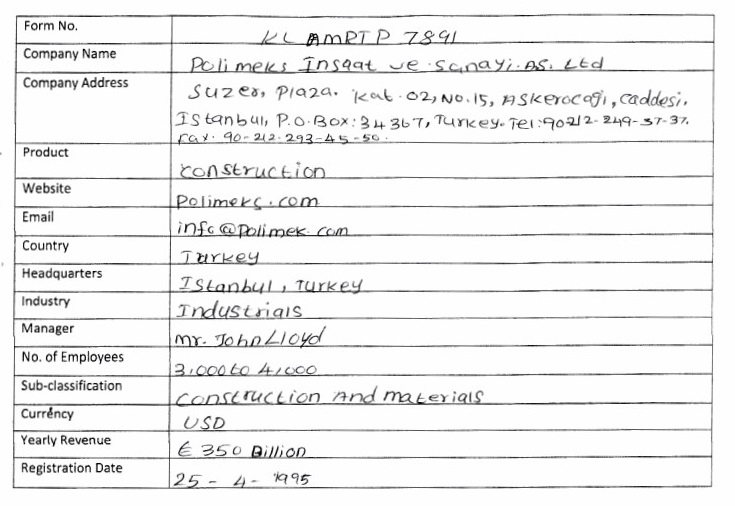 Form No. KLAMRTP 7891
Company Name Polimeks Insaat ve sanayi. AS. Ltd
Company Address Suzer, Plaza. Kat. 02, No. 15, Askerocagi, Caddesi,
Istanbul, P.O. Box: 34367, Turkey. Tel: 90212-249-37-37.
Fax. 90-212-293-45-50.
Product Construction
Website Polimeks.com
Email info@Polimek.com
Country Turkey
Headquarters Istanbul, Turkey
Industry Industrials
Manager Mr. John Lloyd
No. of Employees 3,000 to 4,000
Sub-classification Construction And materials
Currency USD
Yearly Revenue € 350 Billion
Registration Date 25 - 4 - 1995